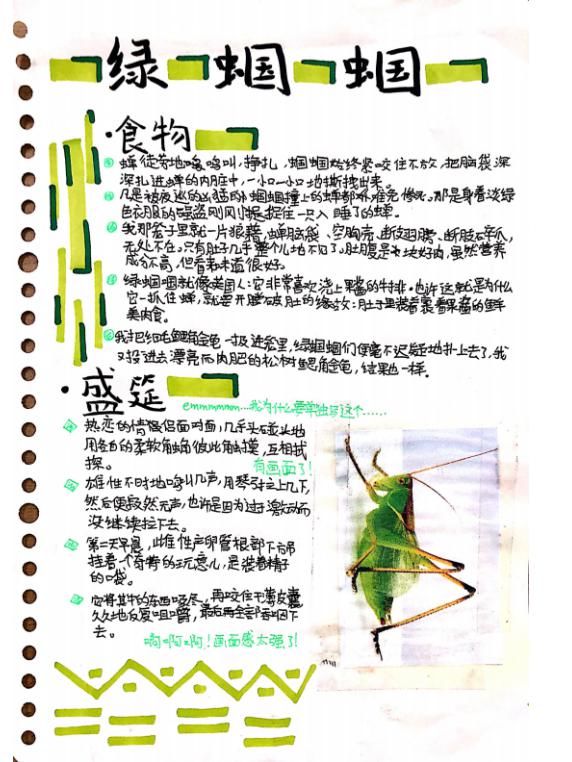 绿蝈蝈
·食物
蝉徒劳地鸣鸣叫,挣扎,蝈蝈始终紧咬住不放,把脑袋深
深扎进蝉的内脏中,一小口一小口地撕拽出来。
凡是被夜巡的出猎的蝈蝈撞上的蝉都难免惨死。那是身着淡绿
色衣服的强盗刚刚捉住一只入睡了的蝉。
我那笼子里就一片狼藉,蝉脑袋、空胸壳、断肢翅膀、断肢碎爪,
无处不在。只有肚子几乎整个儿地不见了。肚腹是块好肉,虽然营养
成分不高,但看来味道很好。
绿蝈蝈就像英国人:它非常喜欢浇上果酱的牛排。也许这就是为什么
它一抓住蝉,就要开膛破肚的缘故:肚子里装着裹着果酱的鲜
美肉食。
我把细毛鳃角金龟一扔进笼里,绿蝈蝈们便毫不迟疑地扑上去了,我
又投进去漂亮而肉肥的松树鳃角金龟,结果也一样。
·盛筵
emmmmmm...我为什么要单独写这个......
热恋的情侣面对面,几乎头碰头地
用各自的柔软触角彼此触摸,互相试
探。
有画面了!
雄性不时地鸣叫几声,用琴弓拉上几下,
然后便寂然无声,也许是因为过于激动而
没继续拉下去。
第二天早晨,雌性产卵管根部下吊
挂着个奇特的玩意儿,是装着精子
的口袋。
它将其中的东西吸尽,再咬住干薄皮囊
久久地反复咀嚼,最后再全部吞咽下
去。
啊啊啊!画面感太强了!